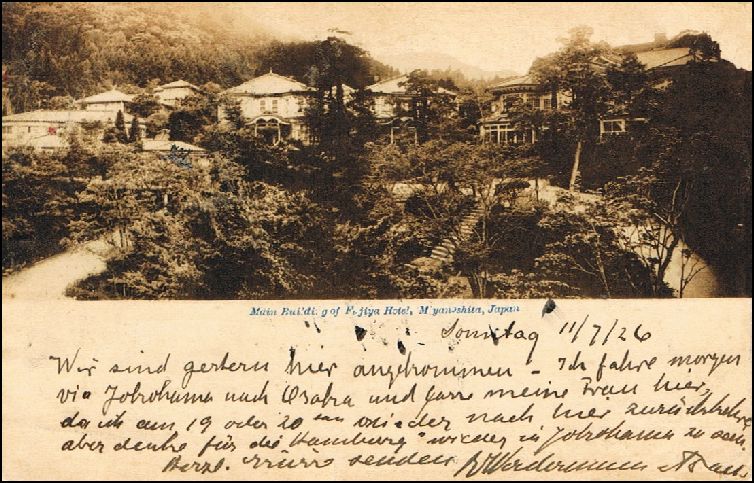 Main Building of Fujiya Hotel, Miyanoshita, Japan
Sonntag 11/7/26
Wir sind gestern hier angekommen - Ich fahre morgen
via Yokohama nach Osaka und lasse meine Frau hier,
da ich am 19 oder 20ten wieder nach hier zurückkehre
aber denke für die "Hamburg" wieder in Yokohama zu sein.
Herzl. Grüsse senden